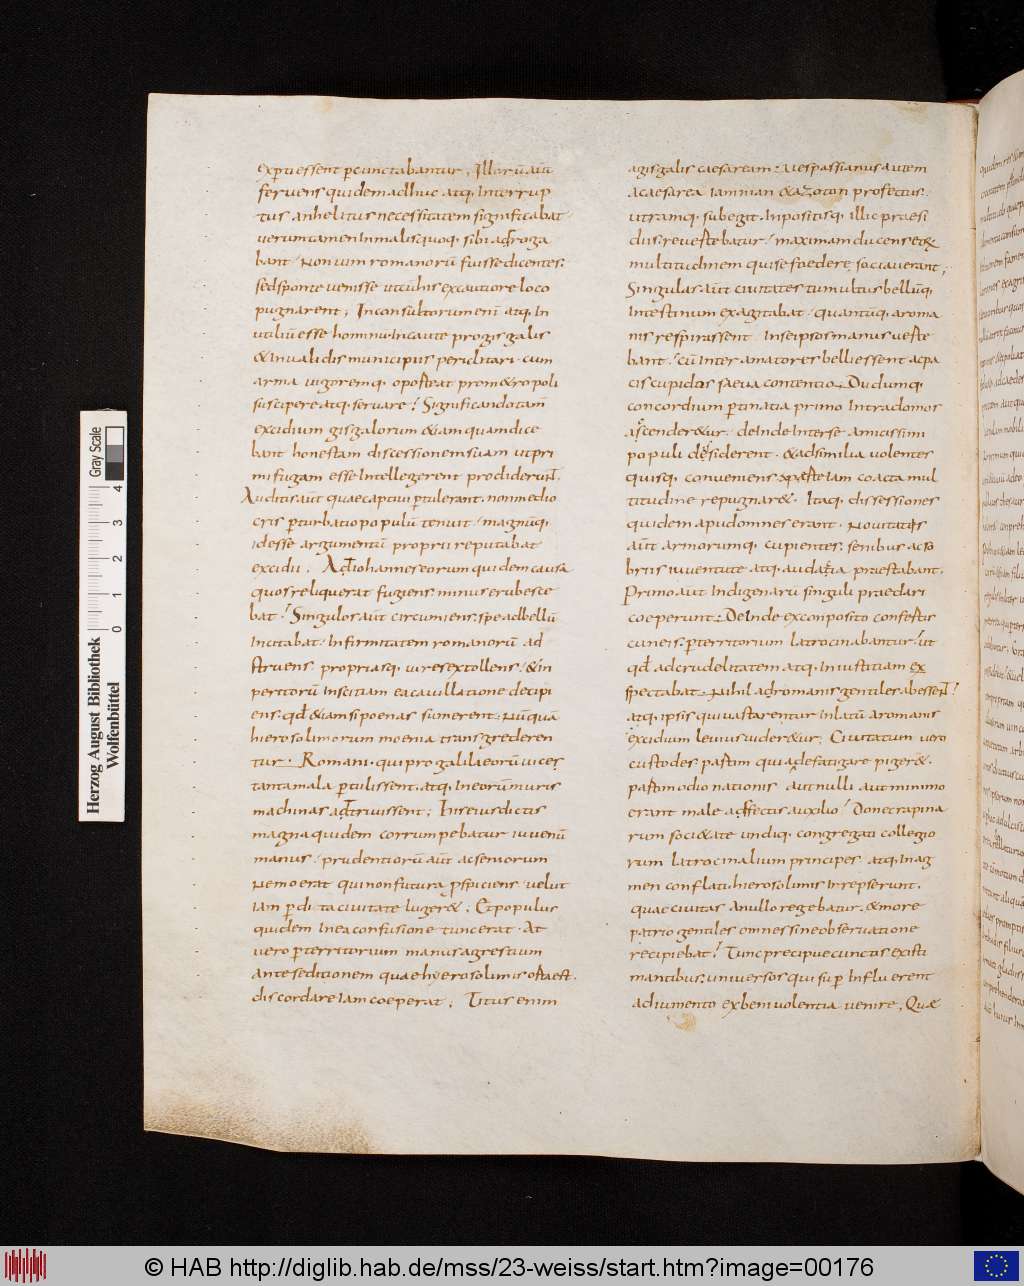 expetissent p̄cunctabantur, Illorū aūt
feruens quidem adhuc atq; Interrup
tus anhelitus necessitatem significabat
uerumtamen In malis quoq; sibi adroga
bant. Non um romanorū fuisse dicentes.
sedsponte uenisse ut eu his ex cautiore loco
pugnarent; Inconsultorum enī atq; In
utiliū esse hominū Incaute pro gisgalis
& Inualidis municipiis periclitari. cum
arma uigoremq; oporteat pro m&ropoli
suscipere atq; seruare; Significando tam̄
excidium gisgalorum & iam quam dice
bant honestam discessionem suam ut pri
mi fugam esse Intellegerent prodiderun̄t.
Auditis aūt quae captiui p̄tulerant, non medio
cris p̄turbatio populū tenuit. magnūq;
id esse argumentū proprii reputabat
excidii. Ad iohannes eorum quidem causa
quos reliquerat fugiens minus erubesce
bat; Singulos aūt circumiens. spe ad bellū
Incitabat. Infirmitatem romanorū ad
struens propriasq; uires extollens. & in
peritorū Inscitiam ea cauillatione decipi
ens. qđ & iam si poenas sumerent. Nūquā
hierosolimorum moenia transgrederen
tur. Romani. qui pro galilaeorū uices
tanta mala p̄tulissent. atq; In eorū muris
machinas adtriuissent; Inseius dictis
magna quidem corrumpebatur iuuenū
manus. prudentiorū aūt ac seniorum
Nemo erat qui non futura p̄spiciens uelut
Iam p̄dita ciuitate luger&; Et populus
quidem In ea confusione tunc erat. At
uero p̄ territorium manus agrestium
ante seditionem quae hyerosolimis orta est.
discordare Iam coeperat; Titus enim
a gisgalis caesaream. Uespassianus autem
a caesarea Iamnian & azoton profectus.
utramq; subegit. Inpositisq; illic praesi
diis. reuertebatur. maximam ducens etiā
multitudinem qui se foedere sociauerant;
Singulas aūt ciuitates tumultus bellūq;
Intestinum exagitabat. quantūq; a roma
nis respirassent. In se ipsos manus uerte
bant. cū Inter amatores belli essent ac pa
cis cupidos saeua contentio. Dudumq;
concordium p̄tinatia primo Intra domos
ascender&ur. deInde Inter se amicissimi
populi desiderent. & ad similia uolentes
quisq; conueniens. ap̄te Iam coacta mul
titudine repugnar&. Itaq; dissessiones
quidem apud omnes erant. Nouitatis
aūt armorumq; cupientes. senibus ac so
briis iuuentute atq; audatia praestabant.
Primo aūt Indigenarū singuli praedari
coeperunt. DeInde ex conposito confertis
cuneis. p̄ territorium latrocinabantur. ut
qđ ad crudelitatem atq; Iniustitiam ex
spectabat. Nihil a romanis gentiles abessen̄t.
atq; ipsis qui uastarentur Inlatū a romanis
excidium leuius uider&ur; Ciuitatum uero
custodes partim quia defatigare piger&.
partim odio nationis aut nulli aut minimo
erant male affectis auxilio. Donec rapina
rum soci&ate undiq; congregati collegio
rum latrocinalium principes. atq; In ag
men conflati. hierosolimis Irrepserunt.
quae ciuitas a nullo regebatur. & more
patrio gentiles omnes sine obseruatione
recipiebat. Tunc precipue cunctis existi
mantibus uniuersos qui sup̄ Influerent
adiumento ex beniuolentia uenire, Quae
Herzog August Bibliothek
Wolfenbüttel
0 1 2 3 4
Gray Scale
© HAB http://diglib.hab.de/mss/23-weiss/start.htm?image=00176